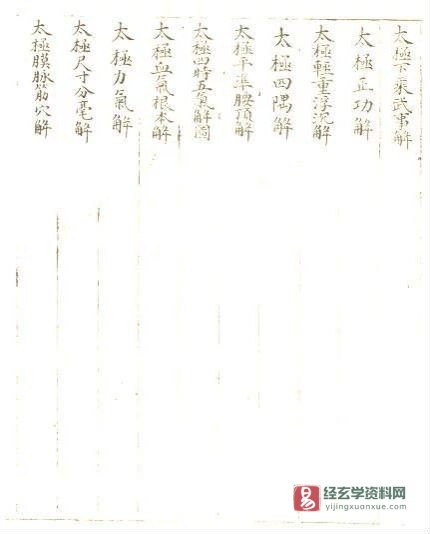 太極下乘武事解
太極正功解
太極輕重浮沉解
太極四隅解
太極平準腰頂解
太極四時五氣解圖
太極血氣根本解
太極力氣解
太極尺寸分毫解
太極膜脉筋穴解
经玄学资料网
yijingxuanxue.com